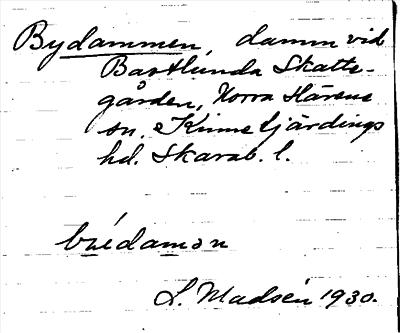 Bydammen, damm vid
Bastlunda Skatte-
gården, Norra Härene
sn. Kinne fjärdings
hd. Skarab. l.
bụ́edamən
L. Madsén 1930.